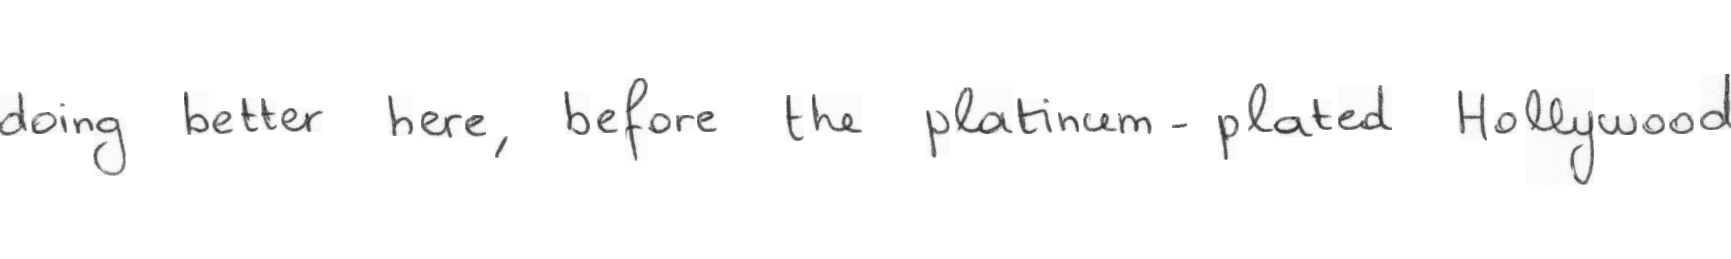 doing better here, before the platinum-plated Hollywood